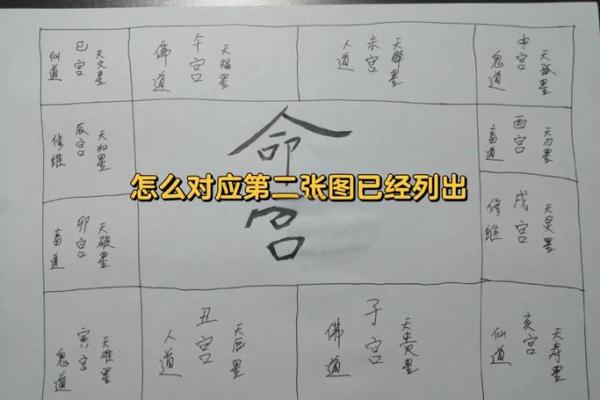 天文星
巳宫
仙道
天福星
午宫
佛道
天驿星
未宫
人道
天孤星
申宫
鬼道
天如星
辰宫
修维
命宫
怎么对应第二张图已经列出
天刃星
酉宫
畜道
天破星
卯宫
畜道
戌宫
修维
天难星
寅宫
鬼道
丑宫
人道
天贵星
子宫
佛道
天寿星
亥宫
仙道